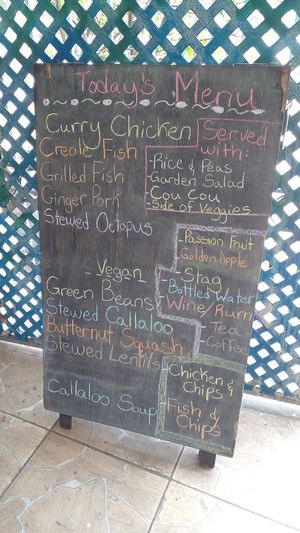 Today's Menu
Curry Chicken
Creole Fish
Grilled Fish
Ginger Pork
Stewed Octopus
Served with:
-Rice & Peas
-Garden Salad
-Cou Cou
-Side of Veggies
-Passion Fruit
-Golden Apple
-Stag
-Bottled Water
-Wine/Rum
-Tea
-Coffee
-Vegan-
Green Beans
Stewed Callaloo
Butternut Squash
Stewed Lentils
Callaloo Soup
-Chicken &
Chips
-Fish &
Chips